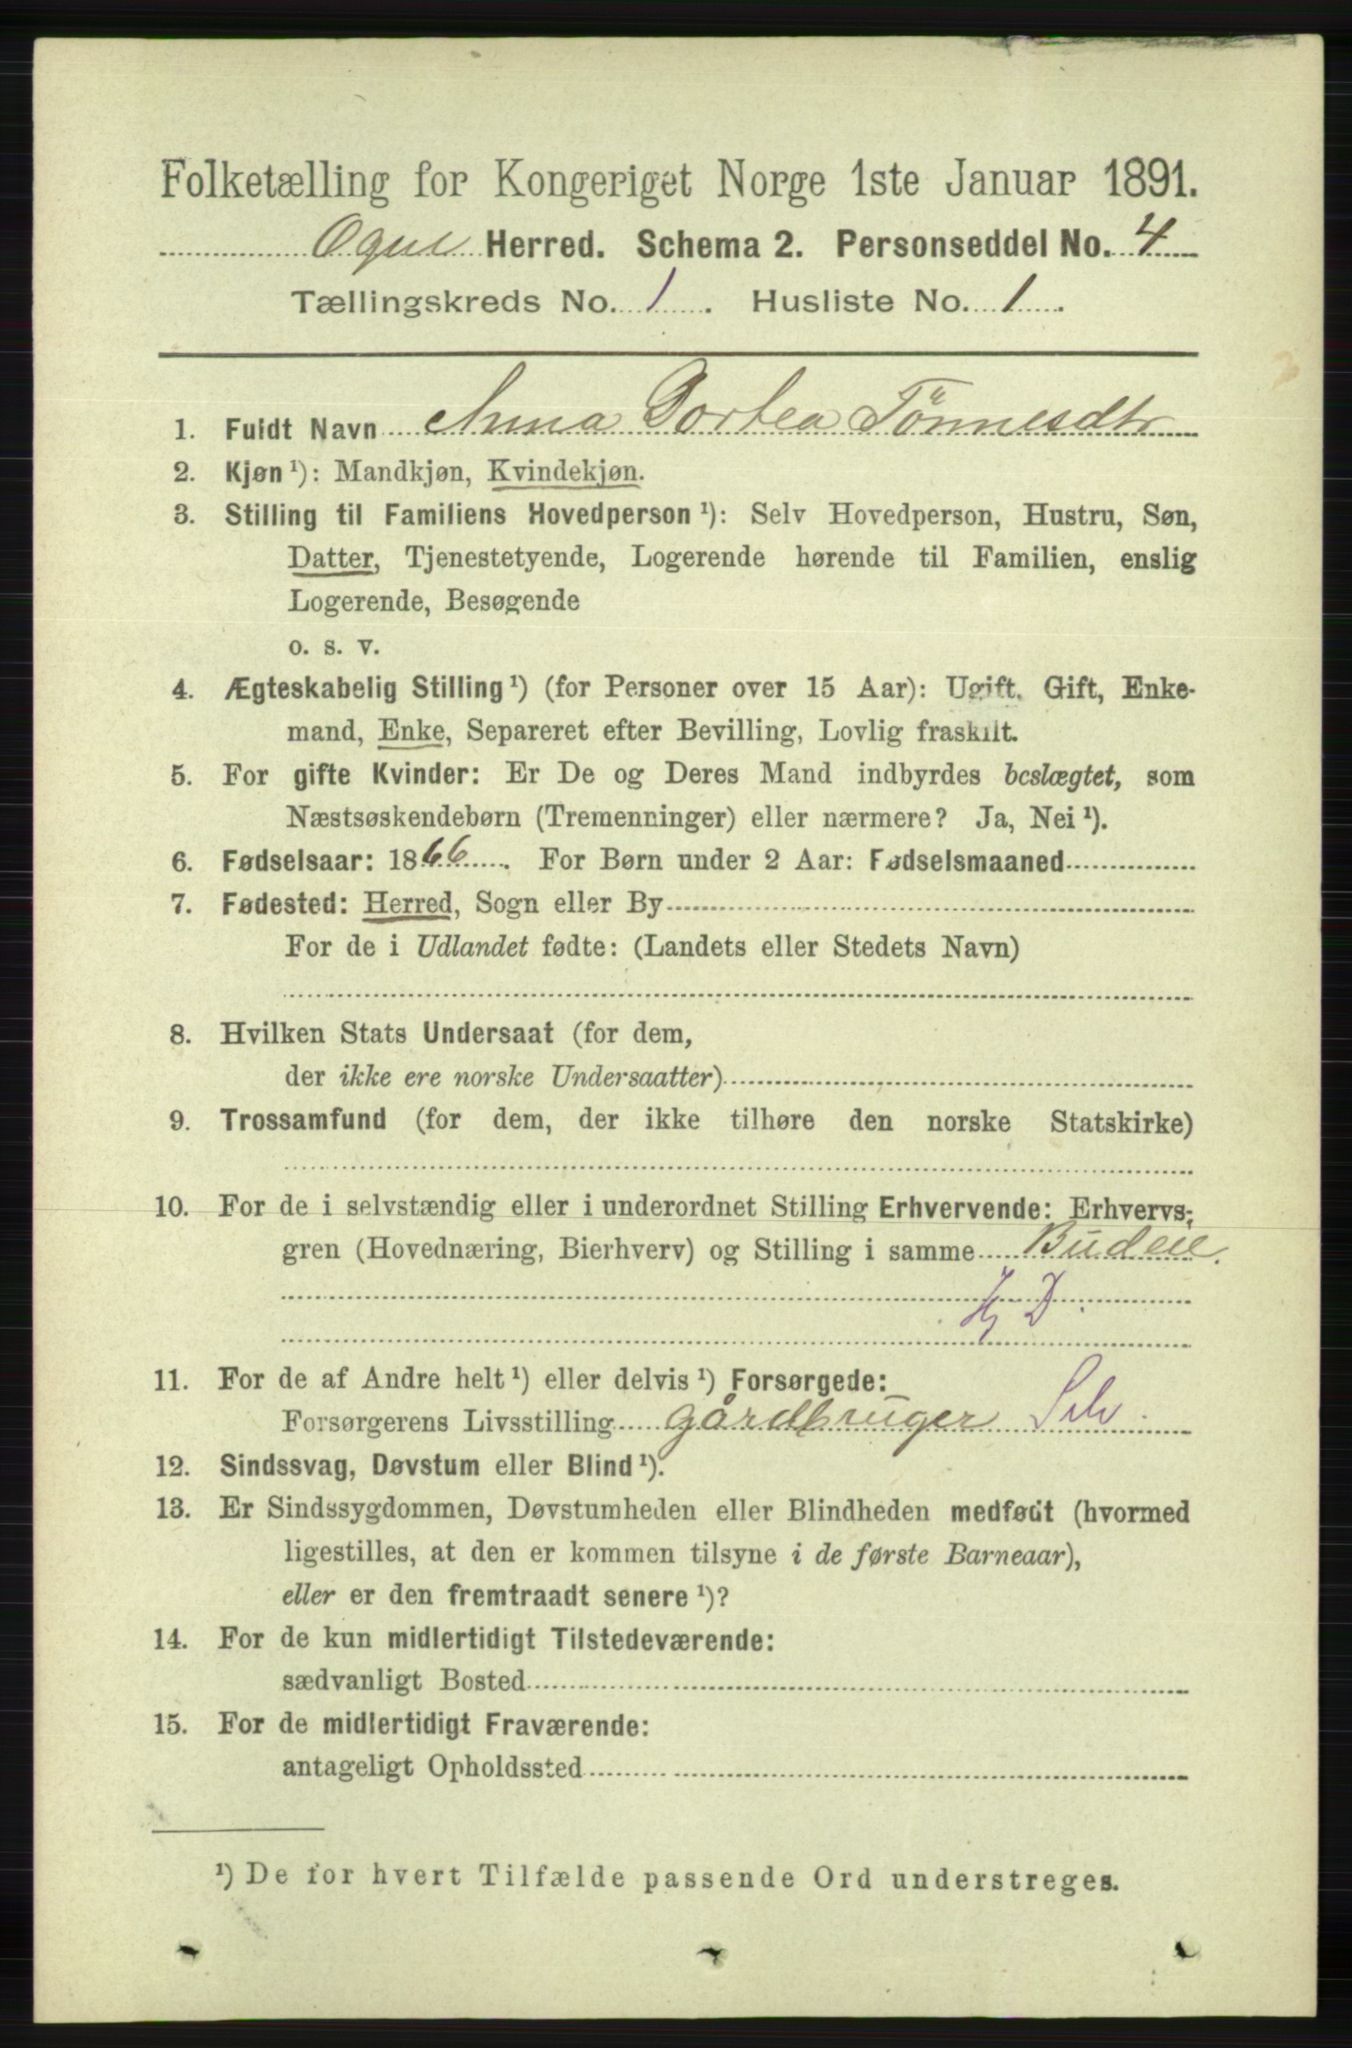 Folketælling for Kongeriget Norge 1ste Januar 1891.
Ogne Herred. Schema 2. Personseddel No. 4
Tællingskreds No. 1. Husliste No. 1.
1. Fuldt Navn Anna Dortea Tønnesdtr
2. Kjøn ¹): Mandkjøn, Kvindekjøn.
3. Stilling til Familiens Hovedperson ¹): Selv Hovedperson, Hustru, Søn,
Datter, Tjenestetyende, Logerende hørende til Familien, enslig
Logerende, Besøgende
o. s. v.
4. Ægteskabelig Stilling ¹) (for Personer over 15 Aar): Ugift, Gift, Enke-
mand, Enke, Separeret efter Bevilling, Lovlig fraskilt.
5. For gifte Kvinder: Er De og Deres Mand indbyrdes beslægtet, som
Næstsøskendebørn (Tremenninger) eller nærmere? Ja, Nei ¹).
6. Fødselsaar: 1866. For Børn under 2 Aar: Fødselsmaaned
7. Fødested: Herred, Sogn eller By
For de i Udlandet fødte: (Landets eller Stedets Navn)
8. Hvilken Stats Undersaat (for dem,
der ikke ere norske Undersaatter)
9. Trossamfund (for dem, der ikke tilhøre den norske Statskirke)
10. For de i selvstændig eller i underordnet Stilling Erhvervende: Erhvervs-
gren (Hovednæring, Bierhverv) og Stilling i samme Budeie.
D
11. For de af Andre helt ¹) eller delvis ¹) Forsørgede:
Forsørgerens Livsstilling gårdbruger Selv
12. Sindssvag, Døvstum eller Blind ¹).
13. Er Sindssygdommen, Døvstumheden eller Blindheden medfødt (hvormed
ligestilles, at den er kommen tilsyne i de første Barneaar),
eller er den fremtraadt senere ¹)?
14. For de kun midlertidigt Tilstedeværende:
sædvanligt Bosted
15. For de midlertidigt Fraværende:
antageligt Opholdssted
¹) De for hvert Tilfælde passende Ord understreges.